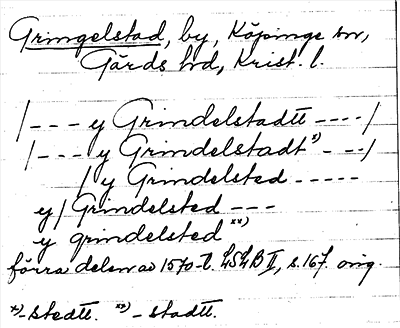 Gringelstad, by, Köpinge sn,
Gärds hd, Krist. l.
/--- y Grindelstadtt ----/
/--- y Grindelstadt x) ---/
/ y Grindelsted -----
y/ Grindelsted ---
y grindelsted xx)
förra delen av 1570-t. LSLB II, s. 167. orig.
x) -stedtt. xx) -stadtt.